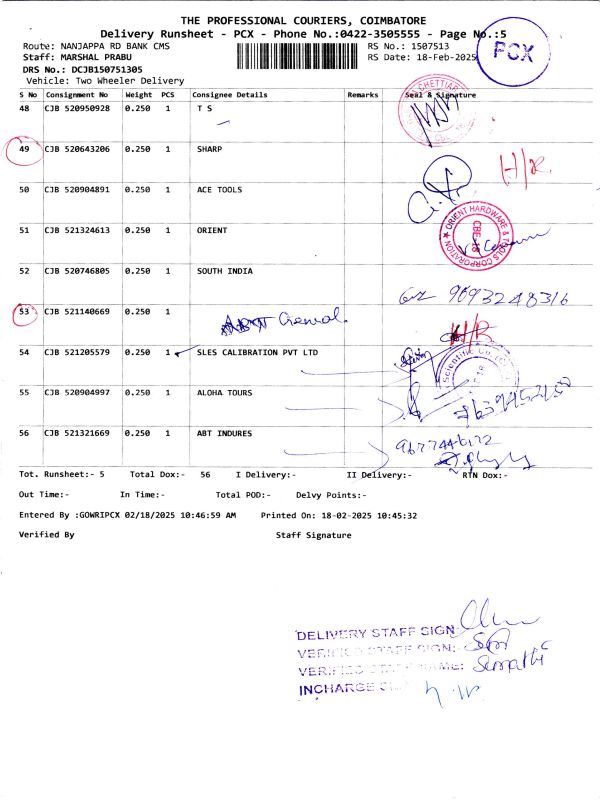 THE PROFESSIONAL COURIERS, COIMBATORE
Delivery Runsheet - PCX - Phone No.:0422-3505555 - Page No.:5
Route: NANJAPPA RD BANK CMS RS No.: 1507513
Staff: MARSHAL PRABU RS Date: 18-Feb-2025
PCX
DRS No.: DCJB150751305
Vehicle: Two Wheeler Delivery
S No Consignment No Weight PCS Consignee Details Remarks Seal & Signature
48 CJB 520950928 0.250 1 T S
CHETTIAR
49 CJB 520643206 0.250 1 SHARP
H/R
50 CJB 520904891 0.250 1 ACE TOOLS
51 CJB 521324613 0.250 1 ORIENT
ORIENT HARDWARE & TOOLS CORPORATION ★
CBE-18
52 CJB 520746805 0.250 1 SOUTH INDIA
9093248316
53 CJB 521140669 0.250 1
ABT General.
H/R
54 CJB 521205579 0.250 1 SLES CALIBRATION PVT LTD
Scientific
55 CJB 520904997 0.250 1 ALOHA TOURS
56 CJB 521321669 0.250 1 ABT INDURES
9677446172
Tot. Runsheet:- 5 Total Dox:- 56 I Delivery:- II Delivery:- RTN Dox:-
Out Time:- In Time:- Total POD:- Delvy Points:-
Entered By :GOWRIPCX 02/18/2025 10:46:59 AM Printed On: 18-02-2025 10:45:32
Verified By Staff Signature
DELIVERY STAFF SIGN:
VERIFIED STAFF SIGN:
VERIFIED STAFF NAME: Sumathi
INCHARGE